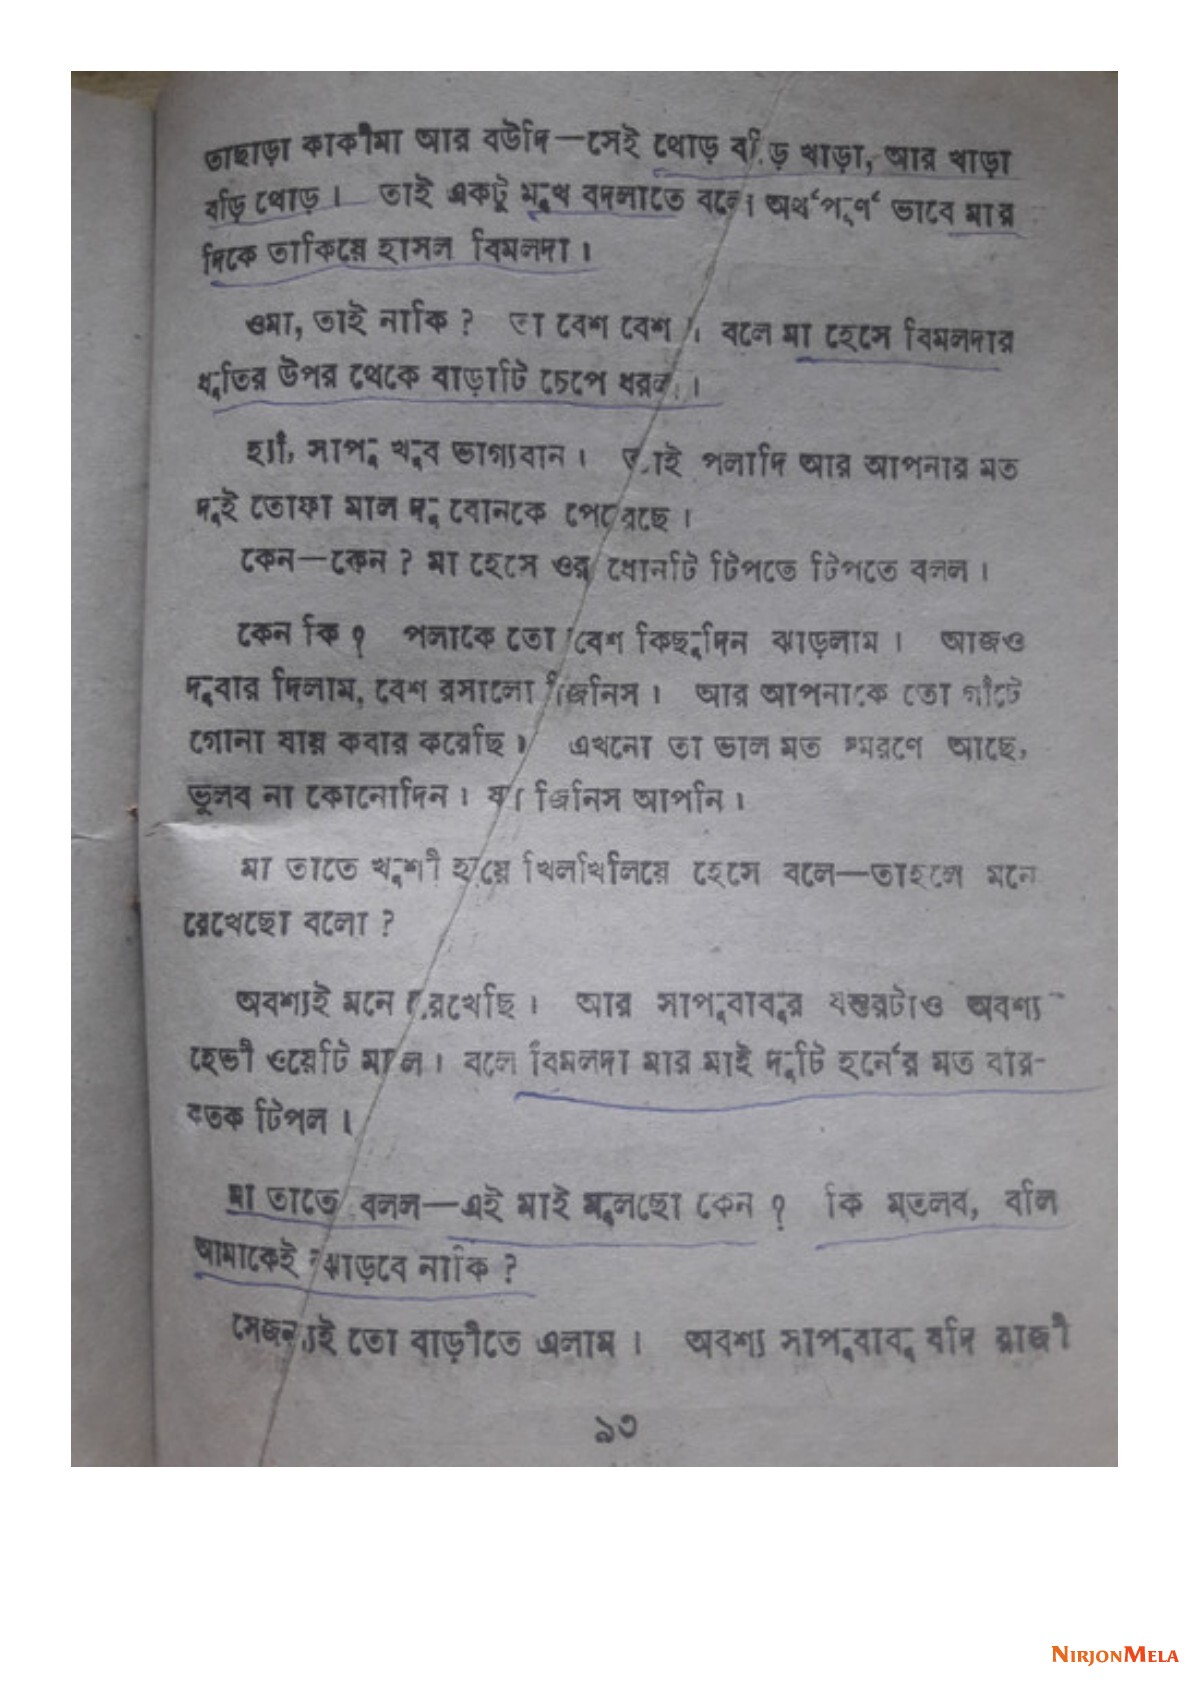 তাছাড়া কাকীমা আর বউদি—সেই থোড় বড়ি খাড়া, আর খাড়া
বড়ি থোড়। তাই একটু মুখ বদলাতে বলে। অর্থপূর্ণ ভাবে মার
দিকে তাকিয়ে হাসল বিমলদা।
ওমা, তাই নাকি? তা বেশ বেশ। বলে মা হেসে বিমলদার
ধুতির উপর থেকে বাড়াটি চেপে ধরল।
হ্যাঁ, সাপু খুব ভাগ্যবান। তাই পলাদি আর আপনার মত
দুই তোফা মাল দু বোনকে পেয়েছে।
কেন—কেন? মা হেসে ওর ধোনটি টিপতে টিপতে বলল।
কেন কি? পলাকে তো বেশ কিছুদিন ঝাড়লাম। আজও
দুবার দিলাম, বেশ রসালো জিনিস। আর আপনাকে তো গাঁটে
গোনা যায় কবার করেছি। এখনো তা ভাল মত স্মরণে আছে,
ভুলব না কোনোদিন। যা জিনিস আপনি।
মা তাতে খুশী হয়ে খিলখিলিয়ে হেসে বলে—তাহলে মনে
রেখেছো বলো?
অবশ্যই মনে রেখেছি। আর সাপুবাবুর যন্তরটাও অবশ্য
হেভী ওয়েটি মাল। বলে বিমলদা মার মাই দুটি হর্নের মত বার-
কতক টিপল।
মা তাতে বলল—এই মাই মুলছো কেন? কি মতলব, বলি
আমাকেই ঝাড়বে নাকি?
সেজন্যই তো বাড়ীতে এলাম। অবশ্য সাপুবাবু যদি রাজী
৯৩
NIRJONMELA